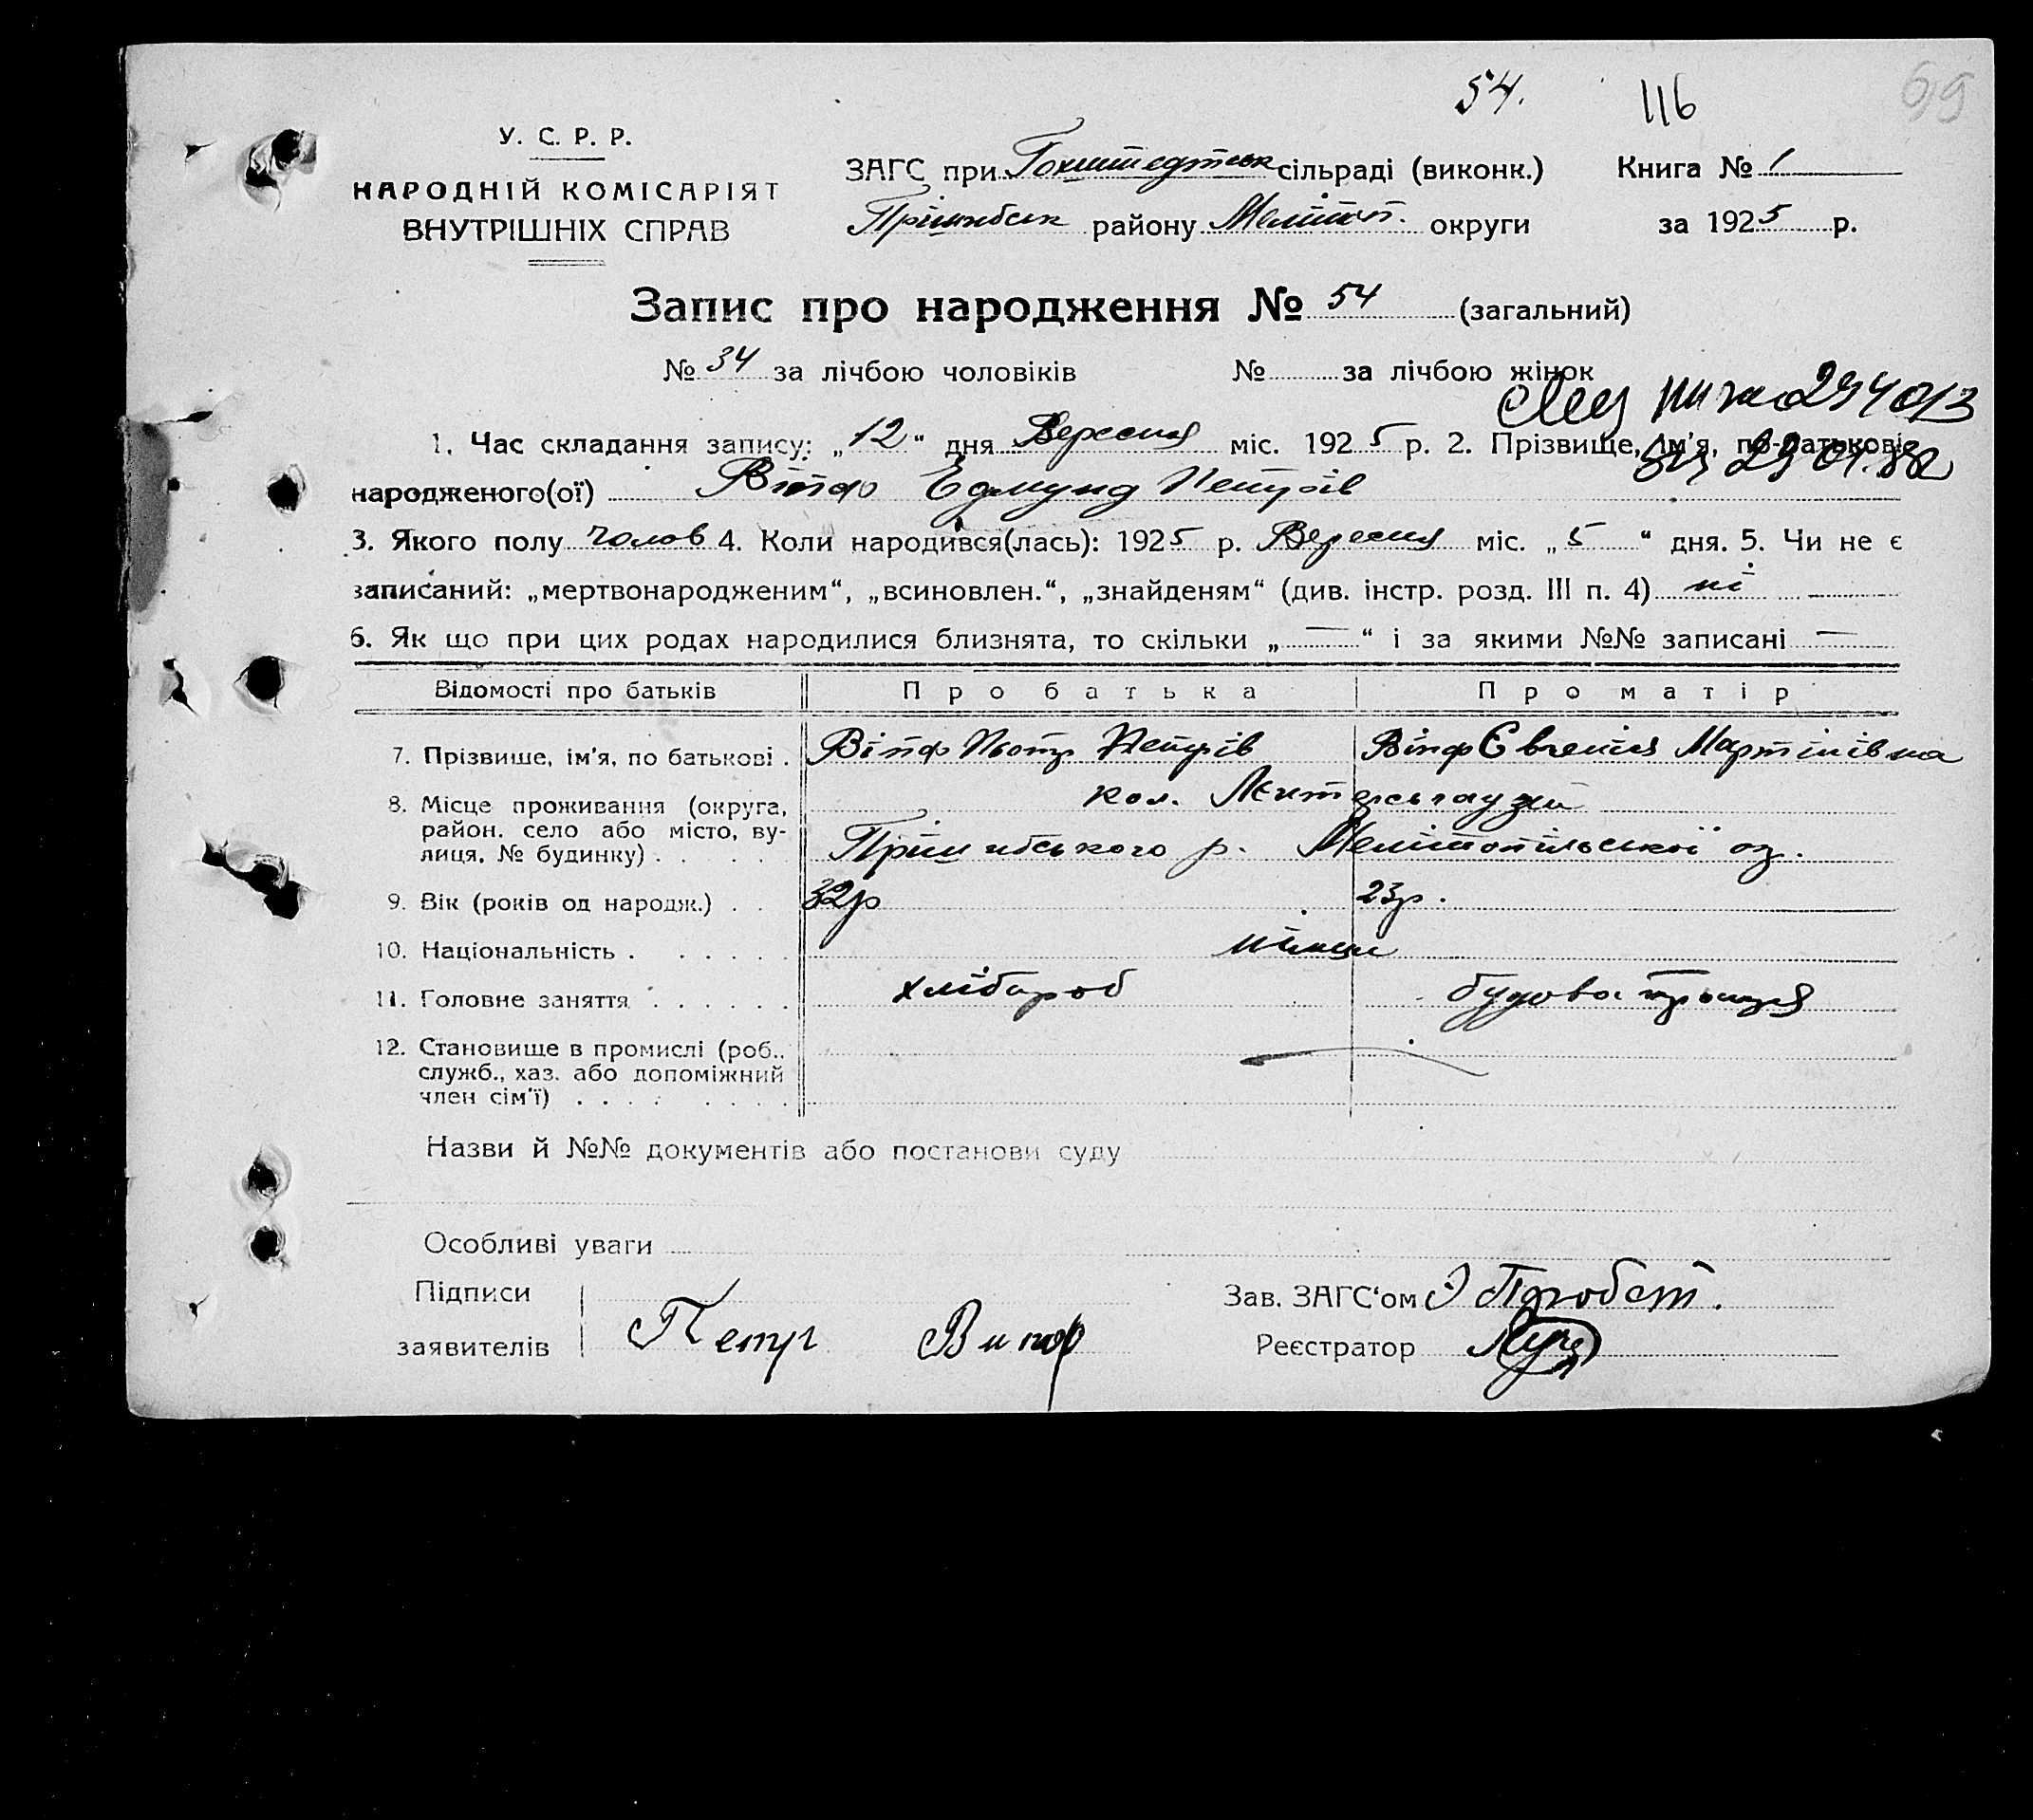 54. 116 69
У. С. Р. Р.
НАРОДНІЙ КОМІСАРІЯТ
ВНУТРІШНІХ СПРАВ
ЗАГС при Гохштедтськ сільраді (виконк.) Книга № 1
Пришибськ району Меліт. округи за 1925 р.
Запис про народження № 54 (загальний)
№ 34 за лічбою чоловіків № за лічбою жінок
294013
1. Час складання запису: „12“ дня Вересня міс. 1925 р. 2. Прізвище, ім'я, по-батькові
народженого(ої) Віпф Едмунд Петрів
3. Якого полу чолов 4. Коли народився(лась): 1925 р. Вересня міс. „5“ дня. 5. Чи не є
записаний: „мертвонародженим“, „всиновлен.“, „знайденям“ (див. інстр. розд. III п. 4) ні
6. Як що при цих родах народилися близнята, то скільки „—“ і за якими №№ записані —
Відомості про батьків Про батька Про матір
7. Прізвише, ім'я, по батькові . Віпф Пьотр Петрів Віпф Євгенія Мартінівна
8. Місце проживання (округа, район, село або місто, вулиця, № будинку) . . . . кол.
Пришибського р. Мелітопільської ок.
9. Вік (років од народж.) . . 32р 23р.
10. Національність . . . . . . німци
11. Головне заняття . . . . . . хлібороб будова праця
12. Становище в промислі (роб.,
служб., хаз. або допоміжний
член сім'ї) . . . . . . . .
Назви й №№ документів або постанови суду
Особливі уваги
Підписи
заявителів Петр Випф
Зав. ЗАГС'ом
Реєстратор